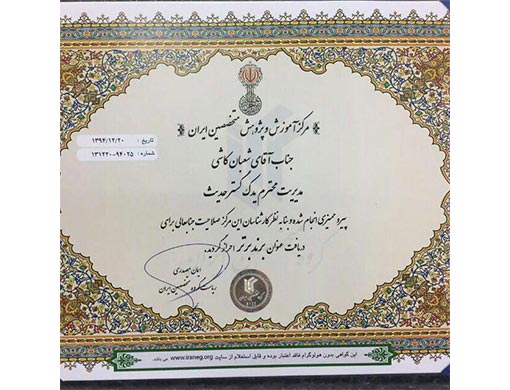 مرکز آموزش و پژوهش متخصصین ایران
تاریخ : ۱۳۹۴/۱۲/۲۰
شماره : ۹۴۰۲۵-۱۳۱۲۲۰
جناب آقای شعبان کاشی
مدیریت محترم یدک گستر حدیث
پیرو ممیزی انجام شده و بنا به نظر کارشناسان این مرکز صلاحیت جنابعالی برای
دریافت عنوان برند برتر احراز گردید.
ریاست گروه متخصصین ایران
این گواهی بدون هولوگرام فاقد اعتبار بوده و قابل استعلام از سایت www.iraneg.org می باشد.